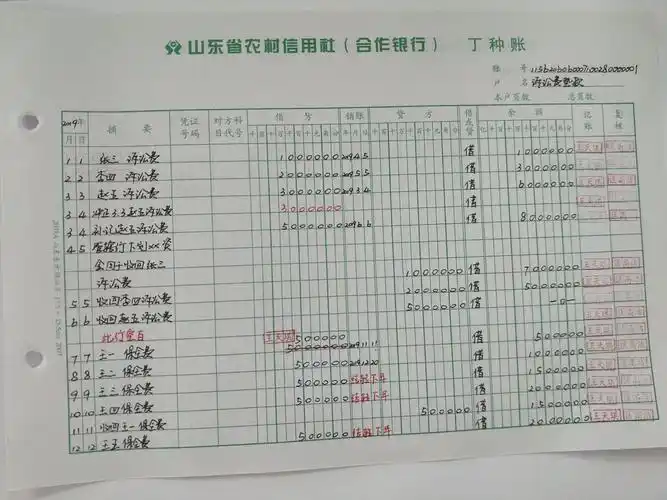 山东省农村信用社（合作银行） 丁种账
账 号
户 名 诉讼费垫款
本户页数 总页数
2019年 摘要 凭证号码 对方科目代号 借方 销账 贷方 借或贷 余额 记账 复核
月 日 千百十万千百十元角分 年月日 千百十万千百十元角分 亿千百十万千百十元角分
1 1 张三 诉讼费 1000000 2019 4 5 借 1000000
2 2 李四 诉讼费 2000000 2019 5 5 借 3000000
3 3 赵五 诉讼费 3000000 2019 3 4 借 6000000
3 4 冲正3.3赵五诉讼费 3000000
3 4 补记赵五诉讼费 5000000 2019 6 6 借 8000000
4 5
合同收回张三
诉讼费 1000000 借 7000000
5 5 收回李四诉讼费 2000000 借 5000000
6 6 收回赵五诉讼费 5000000 -0-
此行空白
7 7 王一 保全费 500000 2019 11 11 借 500000
8 8 王二 保全费 500000 借 1000000
9 9 王三 保全费 500000 结转下年 借 1500000
10 10 王四 保全费 500000 结转下年 借 2000000
11 11 收回王一保全费 500000 借 1500000
12 12 王五 保全费 500000 结转下年 借 2000000